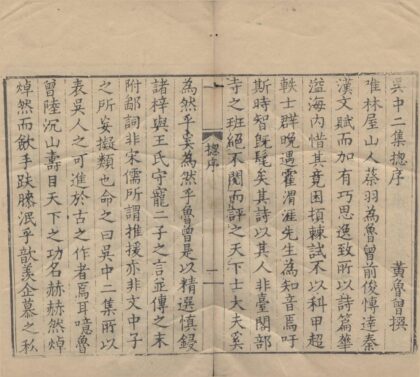 吳中二集揔序
黃魯曾撰
唯林屋山人蔡羽為魯曾前俊愽達秦
漢文賦而加有巧思逸致所以詩篇華
溢海內惜其竟困損棘試不以科甲超
軼士群晚遇霍渭涯先生為知音焉吁
斯時智既髦矣其詩以其人非臺閣部
寺之班絕不閱而評之天下士大夫奚
為然乎奚為然乎魯曾是以精選慎鋟
諸梓與王氏守寵二子之言並傳之末
附鄙詞非宋儒所謂推援亦非文中子
之所妄擬類也命之曰吳中二集所以
表吳人之可進於古之作者焉耳噫魯
曾陸沉山壽目天下之功名赫赫然焯
焯然而飲手跌膝泯乎歆羨企慕之私
揔序
一